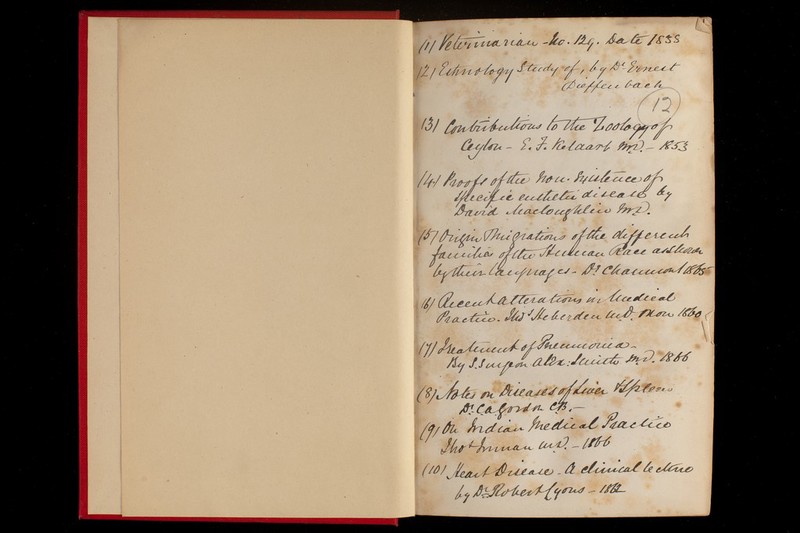 (1) Veterinarian - No. 129. Date 1855
(2) Ethnology Study of, by Dr Ernest
Dieffenbach
12
(3) Contributions to the Zoology of
Ceylon - E. F. Kelaart M.D. - 1853
(4) Proofs of the Non-Existence of
Specific enthetic disease by
David Macloughlin M.D.
(5) Origin Migrations of the different
families of the Human Race as shown
by their Languages - Dr Chaumont 1865
(6) Recent alterations in Medical
Practice. Thos Heberden M.D. Oxon 1860
(7) Treatment of Pneumonia -
By S. Surgeon Alex: Smith M.D. 1866
(8) Notes on Diseases of Liver & Spleen
Dr C A Gordon CB. -
(9) On Indian Medical Practice
Thos Inman M.D. - 1866
(10) Heart Disease - A clinical lecture
by Dr Robert Lyons - 1862